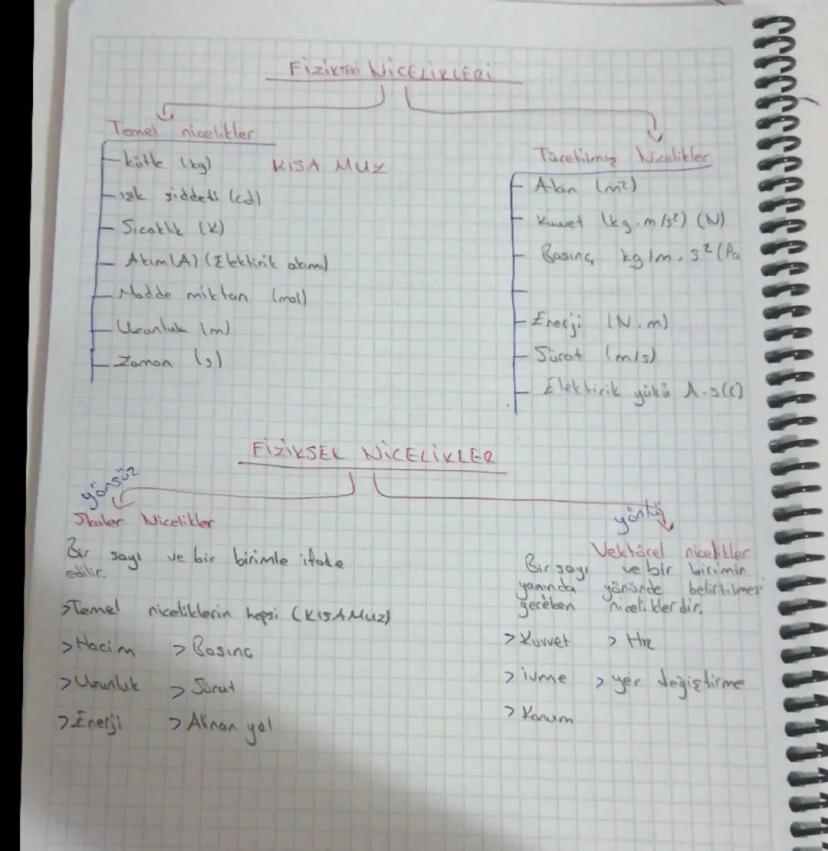 FİZİKTEKİ NİCELİKLERİ
Temel nicelikler
kütle (kg) KISA MUZ
ışık şiddeti (cd)
Sıcaklık (K)
Akım(A) (Elektirik akımı)
Madde miktarı (mol)
Uzunluk (m)
Zaman (s)
Türetilmiş Nicelikler
Alan (m²)
Kuvvet (kg.m/s²) (N)
Basınç kg/m.s² (Pa
Enerji (N.m)
Sürat (m/s)
Elektirik yükü A.s(C)
FİZİKSEL NİCELİKLER
yönsüz
Skaler Nicelikler
Bir sayı ve bir birimle ifade
edilir.
>Temel niceliklerin hepsi (KISAMUZ)
>Hacim >Basınç
>Uzunluk >Sürat
>Enerji >Alınan yol
yönlü
Vektörel nicelikler
Bir sayı ve bir birimin
yanında yönünde belirtilmesi
gereken niceliklerdir.
>Kuvvet >Hız
>ivme >yer değiştirme
>Konum